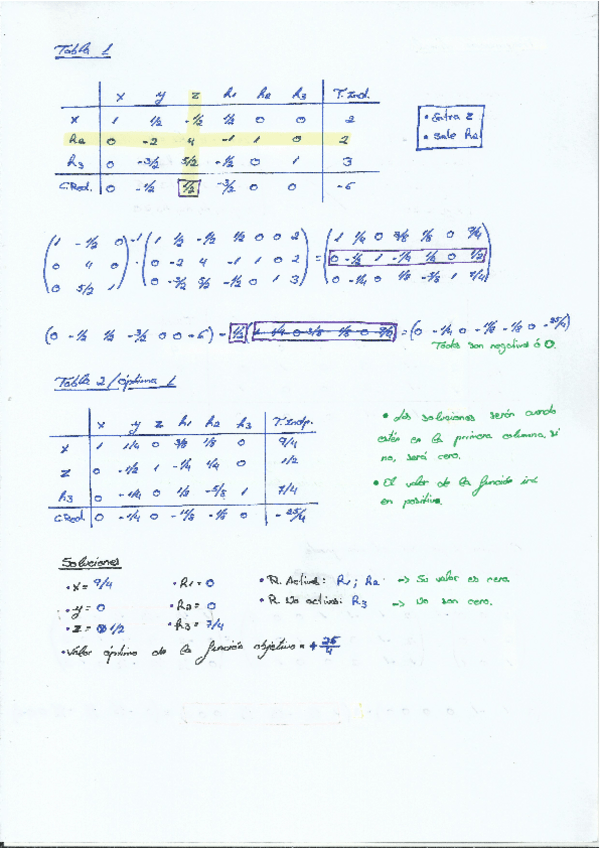 Tabla 1
x y z h1 h2 h3 T. Ind.
x 1 1/2 -1/2 1/2 0 0 2
h2 0 -2 4 -1 1 0 2
h3 0 -3/2 5/2 -1/2 0 1 3
C.Red. 0 -1/2 1/2 -3/2 0 0 -6
• Entra z
• Sale h2
(1 -1/2 0)-1 (1 1/2 -1/2 1/2 0 0 2) (1 1/4 0 3/8 1/8 0 9/4)
(0 4 0) · (0 -2 4 -1 1 0 2) = (0 -1/2 1 -1/4 1/4 0 1/2)
(0 5/2 1) (0 -3/2 5/2 -1/2 0 1 3) (0 -1/4 0 1/8 -5/8 1 7/4)
(0 -1/2 1/2 -3/2 0 0 -6) - 1/2 = (0 -1/4 0 -11/8 -1/8 0 -25/4)
Todos son negativos ó 0.
Tabla 2/Óptima 1
x y z h1 h2 h3 T. Indp.
x 1 1/4 0 3/8 1/8 0 9/4
z 0 -1/2 1 -1/4 1/4 0 1/2
h3 0 -1/4 0 1/8 -5/8 1 7/4
C.Red. 0 -1/4 0 -11/8 -1/8 0 -25/4
• Las soluciones serán cuando
estén en la primera columna, si
no, será cero.
• El valor de la función irá
en positivo.
Soluciones
• x = 9/4 • h1 = 0 • R. Activas: R1; R2 -> Su valor es cero.
• y = 0 • h2 = 0 • R. No activas: R3 -> No son cero.
• z = 1/2 • h3 = 7/4
• Valor óptimo de la función objetivo = + 25/4